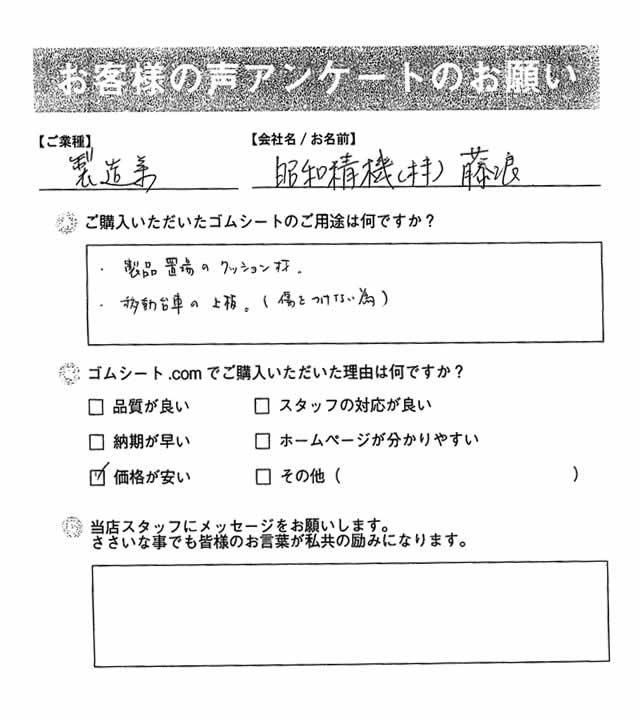 お客様の声アンケートのお願い
【ご業種】 【会社名 / お名前】
製造業 昭和精機(株) 藤浪
ご購入いただいたゴムシートのご用途は何ですか？
・製品置場のクッション材。
・移動台車の上板。(傷をつけない為)
ゴムシート.comでご購入いただいた理由は何ですか？
□ 品質が良い □ スタッフの対応が良い
□ 納期が早い □ ホームページが分かりやすい
☑ 価格が安い □ その他 ( )
当店スタッフにメッセージをお願いします。
ささいな事でも皆様のお言葉が私共の励みになります。